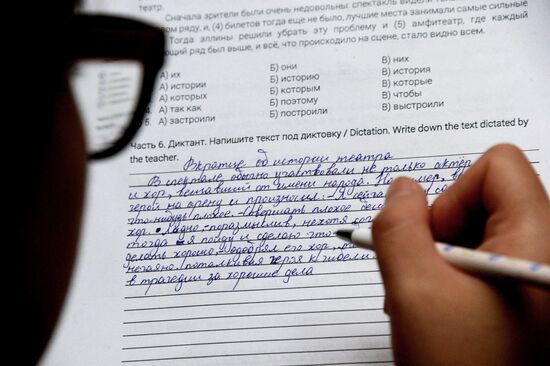 театр.
Сначала зрители были очень недовольны: спектакль видел
ом ряду, и, (4) билетов тогда еще не было, лучшие места занимали самые сильные
Тогда эллины решили убрать эту проблему и (5) амфитеатр, где каждый
ющий ряд был выше, и всё, что происходило на сцене, стало видно всем.
А) их Б) они В) них
А) истории Б) историю В) история
А) которых Б) которым В) которые
А) так как Б) поэтому В) чтобы
5. А) застроили Б) построили В) выстроили
Часть 6. Диктант. Напишите текст под диктовку / Dictation. Write down the text dictated by
the teacher.
Вкратце об истории театра
В спектакле обычно участвовали не только актёр
и хор, вещавший от имени народа. На
герой на арену и произносил: - Я сейча
что-нибудь плохое. Совершать плохое дело
хор. Ладно, поразмыслив, нехотя
тогда я пойду и сделаю что-
делать хорошо, одобрял его хор,
нечаянно подталкивая героя к гибели
в трагедии за хорошие дела